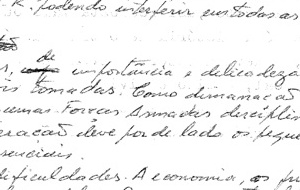 R. podendo interferir em todas as
de
importância e delicadeza
is tomadas. Como dimanação
umas Forças Armadas disciplin
eração deve por de lado os peque
senciais.
dificuldades. A economia, os fr